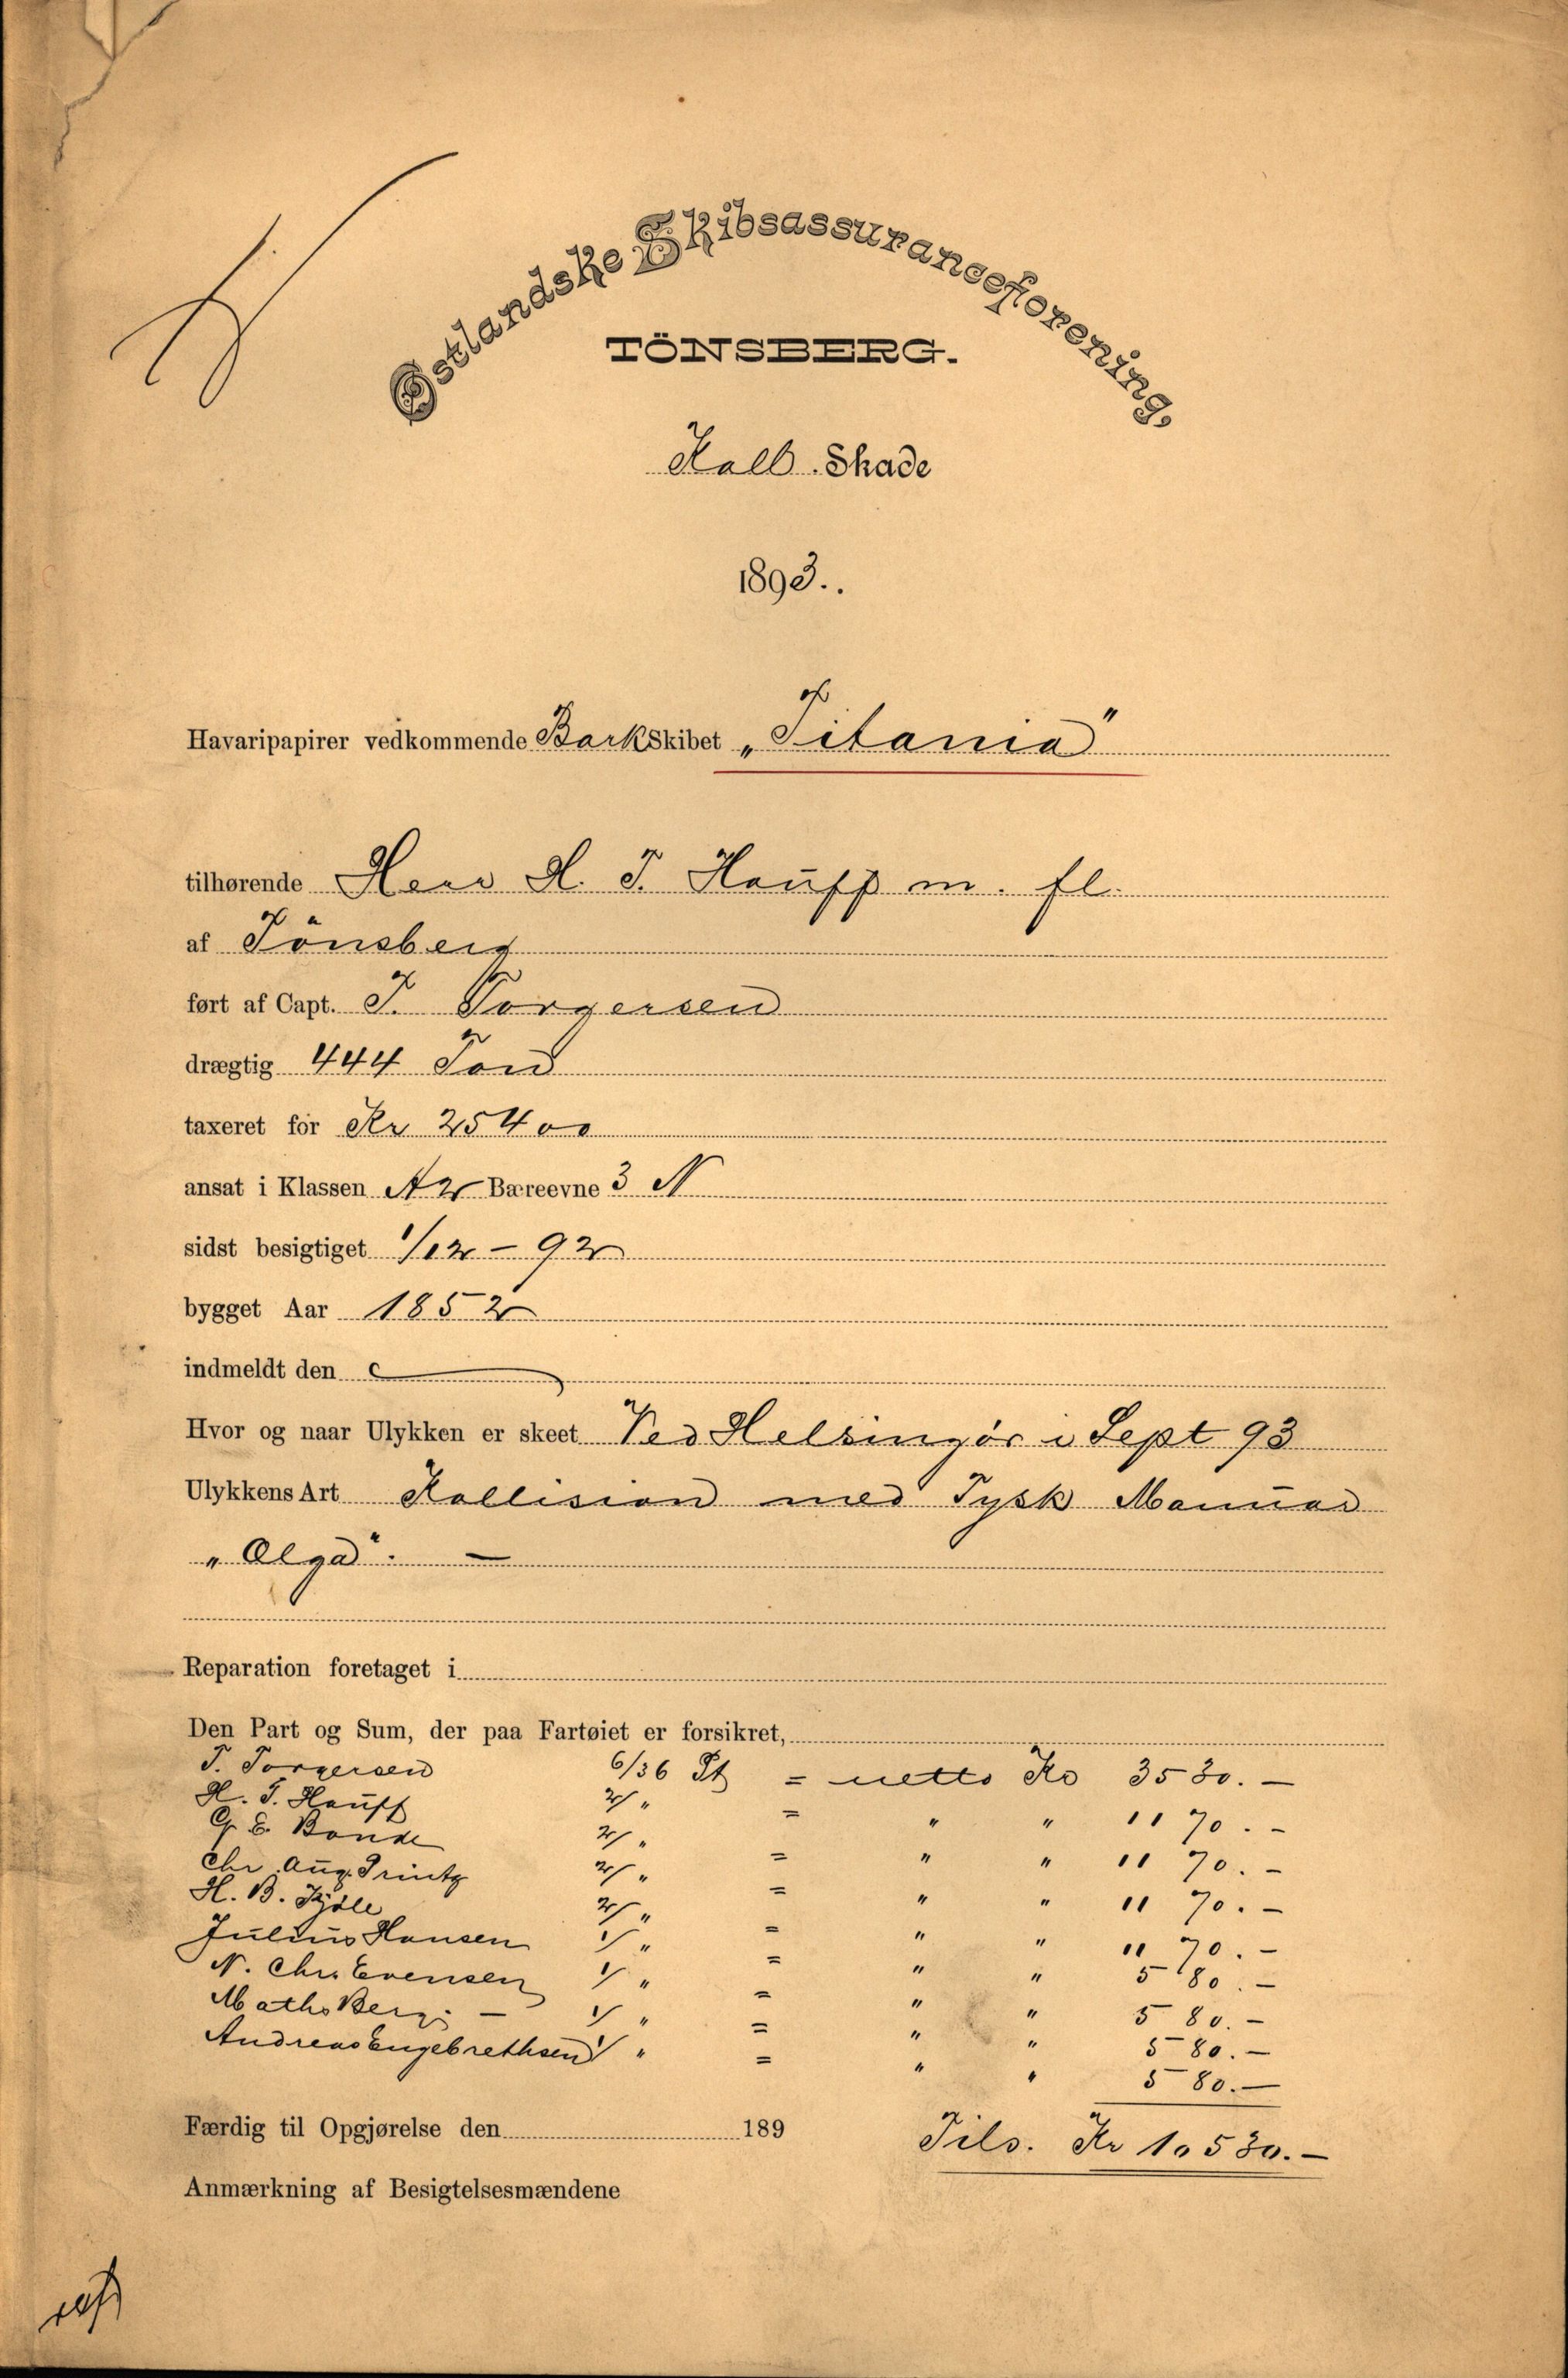 Østlandske Skibsassuranceforening,
TÖNSBERG.
Koll. Skade
1893.
Havaripapirer vedkommende Bark Skibet „Titania"
tilhørende Herr H. T. Hauff m. fl.
af Tönsberg
ført af Capt. T. Torgersen
drægtig 444 Tons
taxeret for Kr 25400
ansat i Klassen A2 Bæreevne 3 N
sidst besigtiget 1/12 - 92
bygget Aar 1852
indmeldt den
Hvor og naar Ulykken er skeet Ved Helsingør i Sept 93
Ulykkens Art Kollision med Tysk
„Olga".
Reparation foretaget i
Den Part og Sum, der paa Fartøiet er forsikret,
T. Torgersen 6/36 Pt = netto Kr 3530. —
H. T. Hauff 2/ „ = " " 1170. -
G. E. Bonde 2/ „ = " " 1170. -
Chr. Aug. Printz 2/ „ = " " 1170. -
H. B. 2/ „ = " " 1170. -
Julius Hansen 1/ „ = " " 580. -
N. Chr. Evensen 1/ „ = " " 580. -
Maths Berg. — 1/ „ = " " 580. —
Andreas Engebrethsen 1/ „ = " " 580. —
Færdig til Opgjørelse den 189
Tils. Kr 10530. —
Anmærkning af Besigtelsesmændene